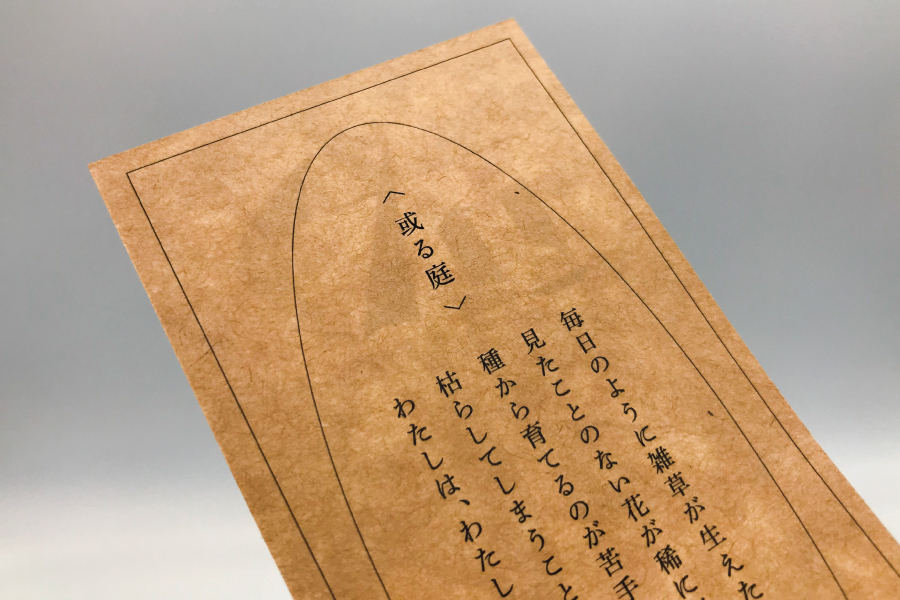 〈或る庭〉
毎日のように雑草が生えた
見たことのない花が稀に
種から育てるのが苦手
枯らしてしまうこと
わたしは、わたし